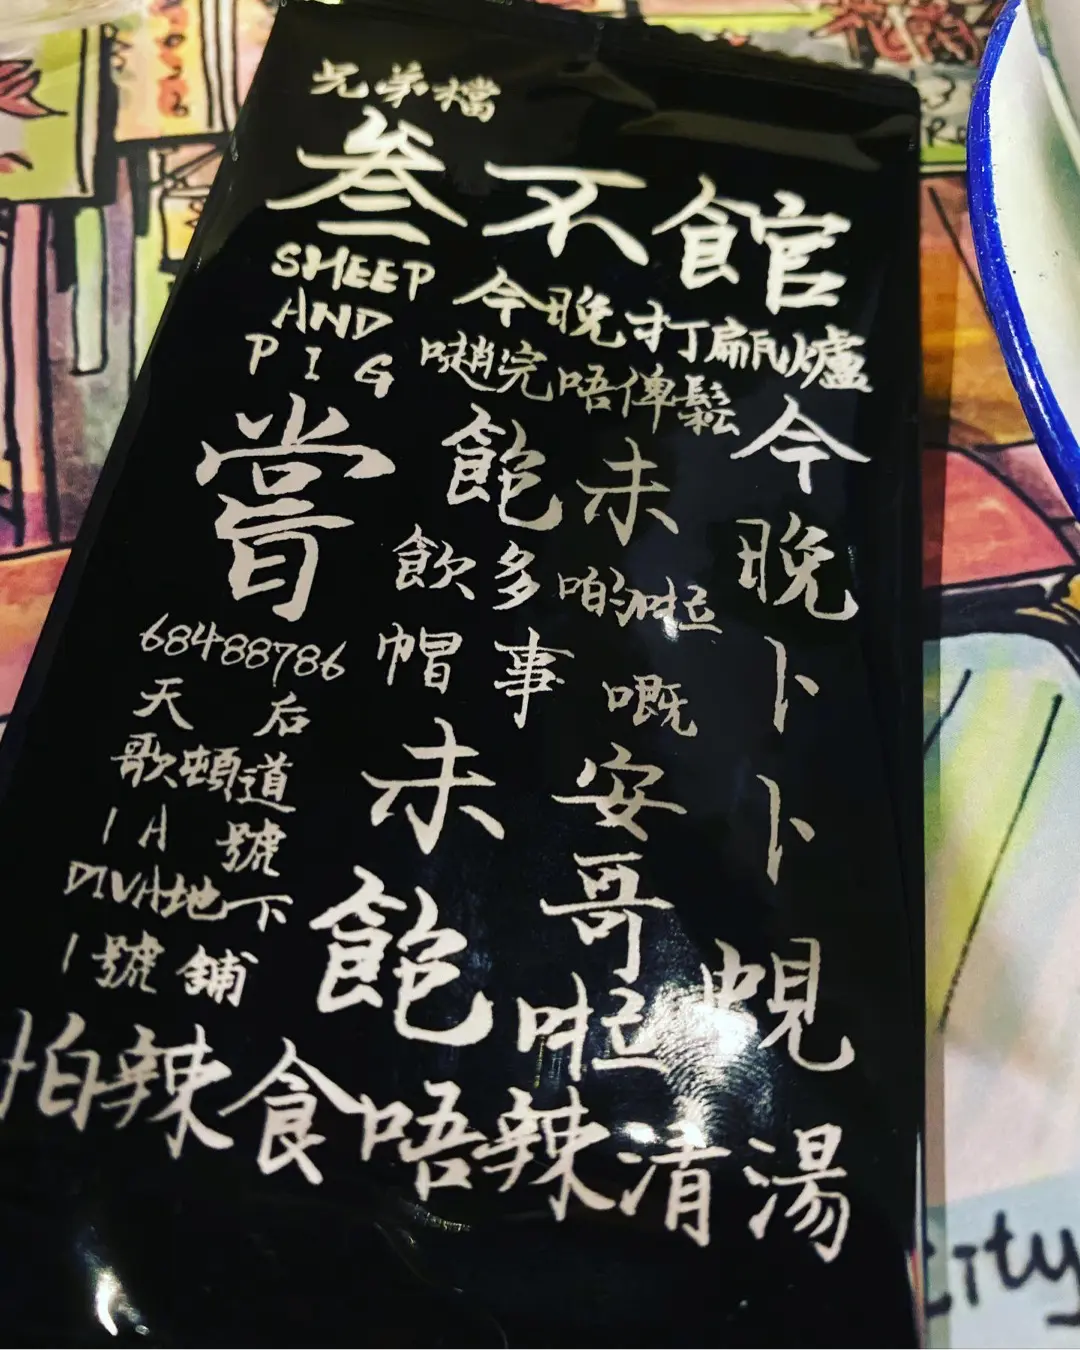 兄弟檔
叁不館
SHEEP
AND
PIG
今晚打甌爐
噠完唔俾鬆
今晚卜卜蜆
飽未
啲啦
嘅
安哥
啦
飲多
帽事
未飽
嘗
68488786
天后
歌頓道
1A號
DIVA地下
1號舖
怕辣食唔辣清湯
city